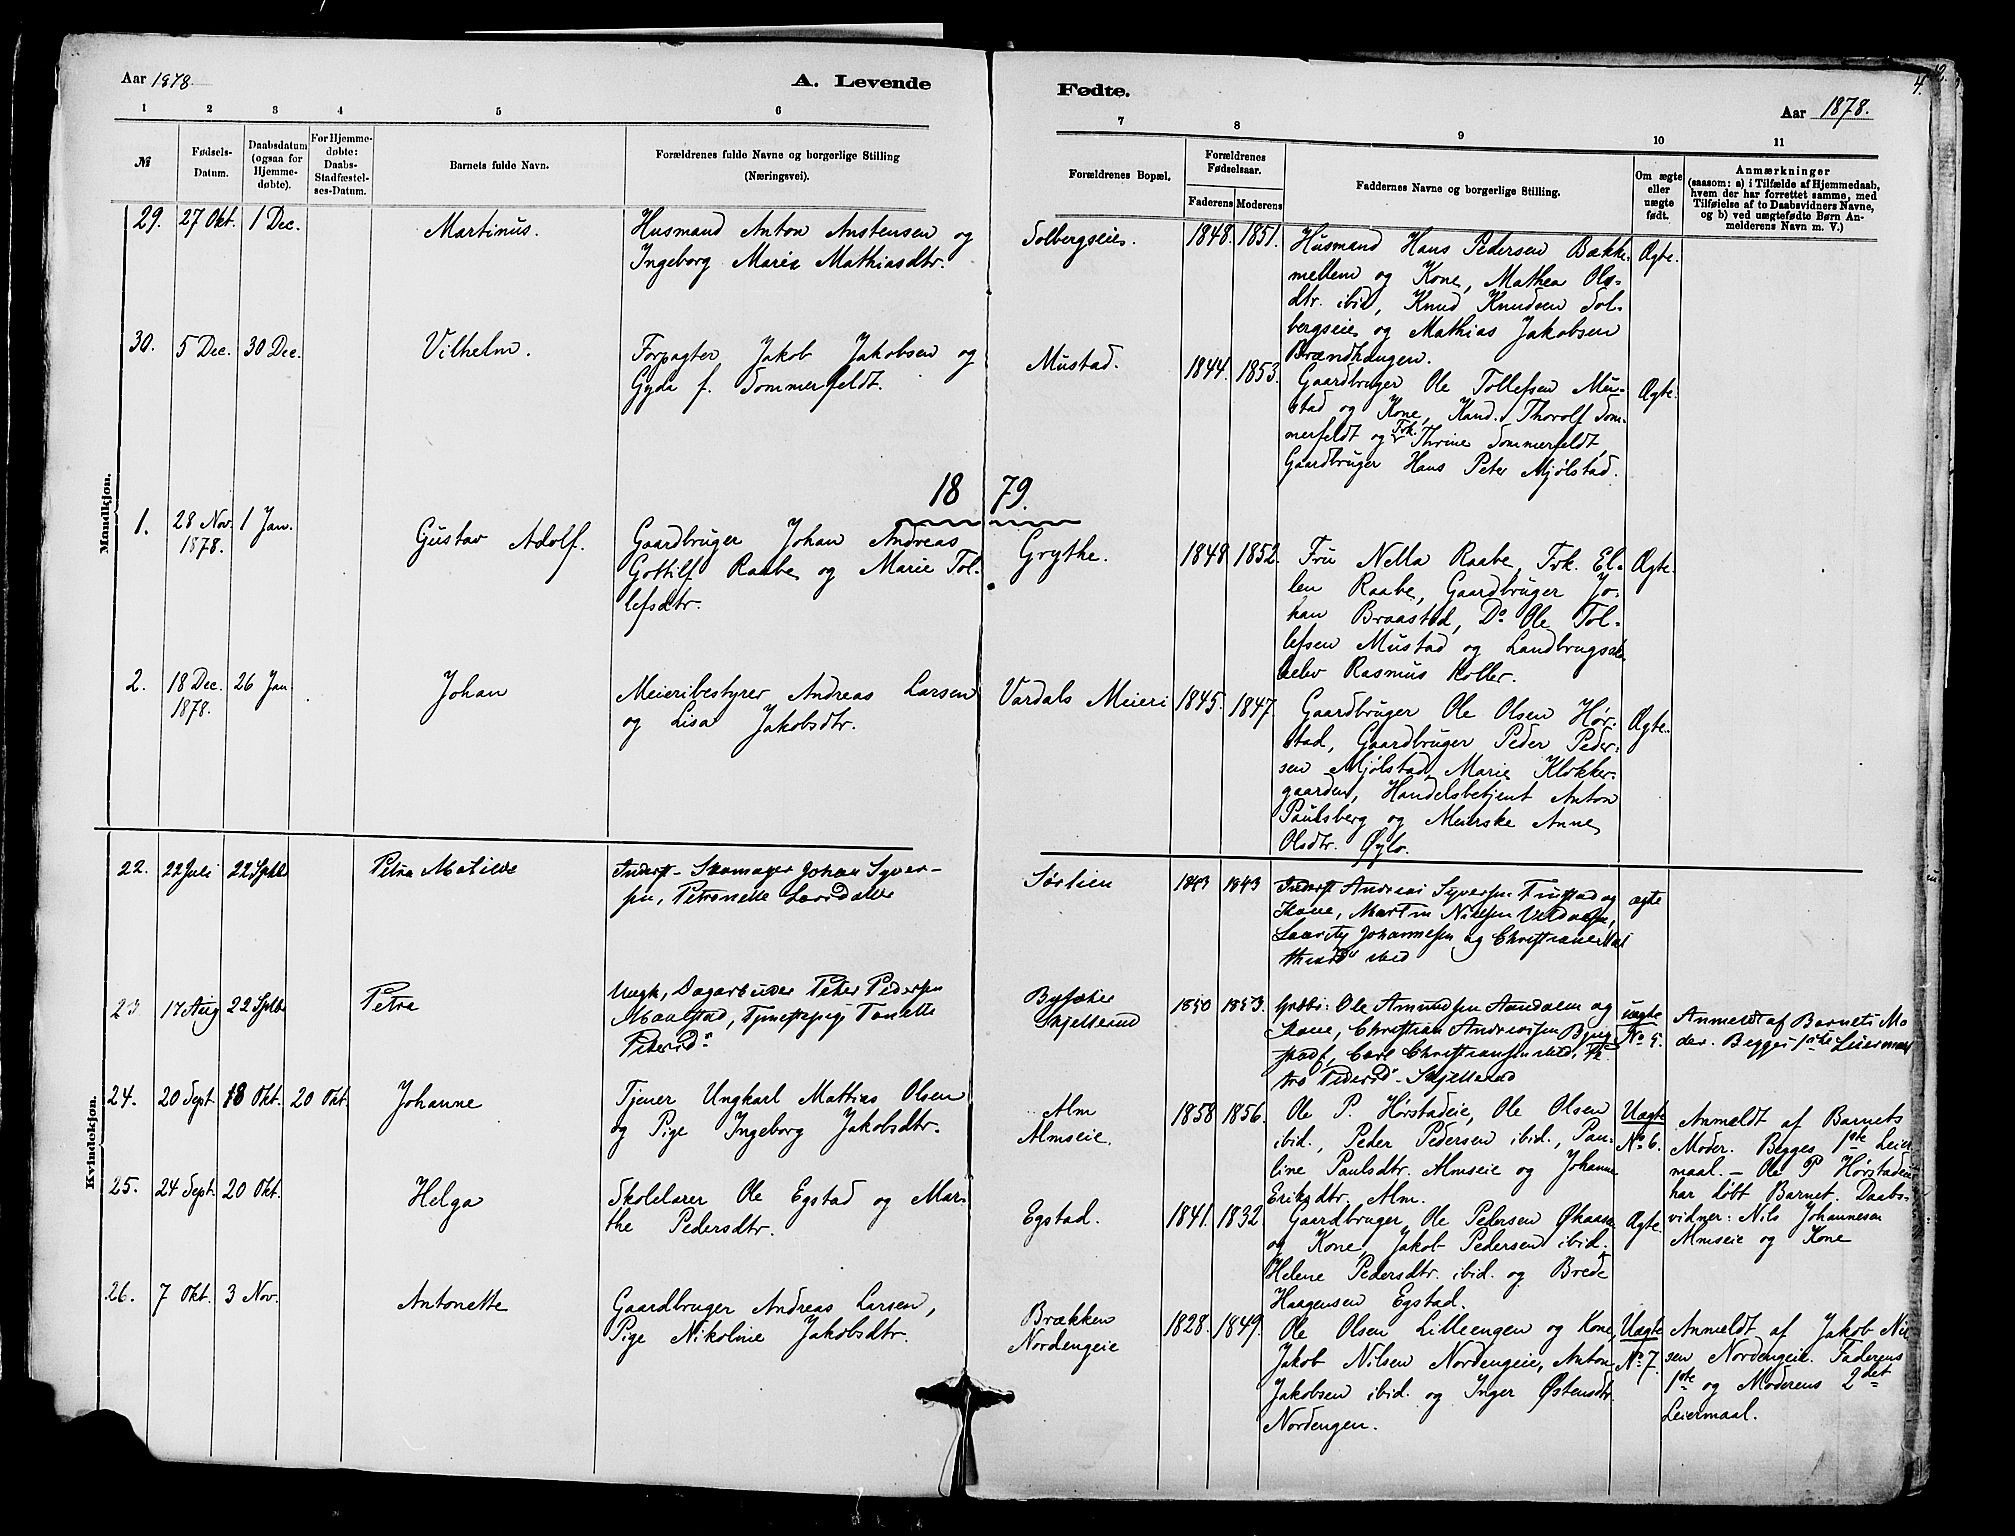 Aar 1878.
A. Levende
1 2 3 4 5 6
№
Fødsels-
Datum.
Daabsdatum
(ogsaa for
Hjemme-
døbte).
For Hjemme-
døbte:
Daabs-
Stadfæstel-
ses-Datum.
Barnets fulde Navn.
Forældrenes fulde Navne og borgerlige Stilling
(Næringsvei).
Mandkjøn.
29. 27 Okt. 1 Dec. Martinus. Husmand Anton Anstensen og
Ingeborg Marie Mathiasdtr.
30. 5 Dec. 30 Dec. Vilhelm. Forpagter Jakob Jakobsen og
Gyda f. Sommerfeldt.
18
1. 28 Nov. 1 Jan. Gustav Adolf. Gaardbruger Johan Andreas
1878. Gottilf Raabe og Marie Tol-
lefsdtr.
2. 18 Dec. 26 Jan Johan Meieribestyrer Andreas Larsen
1878. og Lisa Jakobsdtr.
Kvindekjøn.
22. 22 Juli 22 Septbr Petra Matilde Inderst-Skomager Johan Syver-
sen, Petronelle Larsdatter
23. 17 Aug 22 Septbr Petra Ungk, Dagarbeider Peter Pedersen
Maalstad, Tjenestepige Tonette
Petersd.
24. 20 Sept 18 Okt. 20 Okt. Johanne Tjener Ungkarl Mattias Olsen
og Pige Ingeborg Jakobsdtr.
25. 24 Sept. 20 Okt. Helga Skolelærer Ole Egstad og Mar-
the Pedersdtr.
26. 7 Okt. 3 Nov. Antonette Gaardbruger Andreas Larsen,
Pige Nikoline Jakobsdtr.
Fødte.
4.
Aar 1878.
7 8 9 10 11
Forældrenes Bopæl.
Forældrenes
Fødselsaar.
Faderens Moderens
Faddernes Navne og borgerlige Stilling.
Om ægte
eller
uægte
født.
Anmærkninger
(saasom: a) i Tilfælde af Hjemmedaab,
hvem der har forrettet samme, med
Tilføielse af to Daabsvidners Navne,
og b) ved uægtefødte Børn An-
melderens Navn m. V.)
Solbergseie. 1848. 1851. Husmand Hans Pedersen Bække- Ægte.
mellem og Kone, Mathea Ols-
dtr. ibid, Knud Knudsen Sol-
bergseie og Mathias Jakobsen
Brændhaugen.
Mustad. 1844. 1853. Gaardbruger Ole Tollefsen Mu- Ægte.
stad og Kone, Kand. Thorolf Som-
merfeldt og Frk. Thrine Sommerfeldt,
Gaardbruger Hans Peter Mjølstad.
79.
Grythe. 1848 1852. Fru Nella Raabe, Frk. El- Ægte.
len Raabe, Gaardbruger Jo-
han Braastad, Do Ole Tol-
lefsen Mustad og Landbrugs-
elev Rasmus Koller.
Vardals Meieri 1845. 1847. Gaardbruger Ole Olsen Hør- Ægte.
stad, Gaardbruger Peder Peder-
sen Mjølstad, Marie Klokker-
gaarden, Handelsbetjent Anton
Paulsberg og Meierske Anne
Olsdtr. Øylo.
Sørlien 1843 1843 Inderst Andreas Syversen og ægte
Kone, Martin Nilsen
Lauritz Johannesen og Christiane
1850 1853. Ole Amundsen og uægte Anmeldt af Barnets Mo-
Kone, Christian Andreassen No 5. der. Begges 1ste Leiermaal
Carl Christiansen
Pedersd. Skjellerud
Alm 1858 1856. Ole P. Hørstadeie, Ole Olsen Uægte Anmeldt af Barnets
Almseie. ibid., Peder Pedersen ibid., Pau- No 6. Moder. Begges 1ste Leier-
line Paulsdtr. Almseie og Johanne maal. – Ole P Hørstadeie
Eriksdtr. Alm. har døbt Barnet. Daabs-
Egstad. 1841. 1832. Gaardbruger Ole Pedersen Økaasen Ægte. vidner: Nils Johannesen
og Kone, Jakob Pedersen ibid. Almseie og Kone
Helene Pedersdtr. ibid. og Brede
Haagensen Egstad.
Brækken 1828. 1849. Ole Olsen Lilleengen og Kone, Uægte Anmeldt af Jakob Nil-
Nordengeie Jakob Nilsen Nordengeie, Anton No 7. sen Nordengeie. Faderens
Jakobsen ibid. og Inger Østensdtr. 1ste og Moderens 2det
Nordengen. Leiermaal.